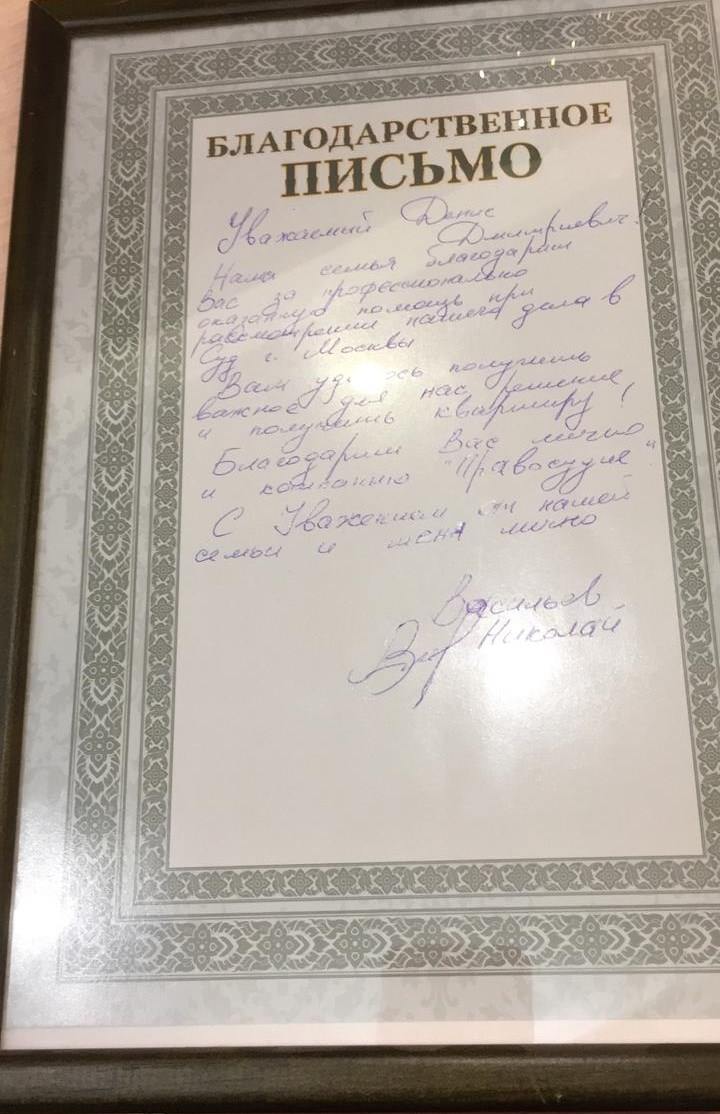 БЛАГОДАРСТВЕННОЕ
ПИСЬМО
Уважаемый Денис
Дмитриевич!
Наша семья благодарит
Вас за профессионально
оказанную помощь при
рассмотрении нашего дела в
Суд г. Москвы
Вам удалось получить
важное для нас решение
и получить квартиру!
Благодарим Вас лично
и компанию "Правосудие"
С Уважением от нашей
семьи и меня лично
Васильев
Николай